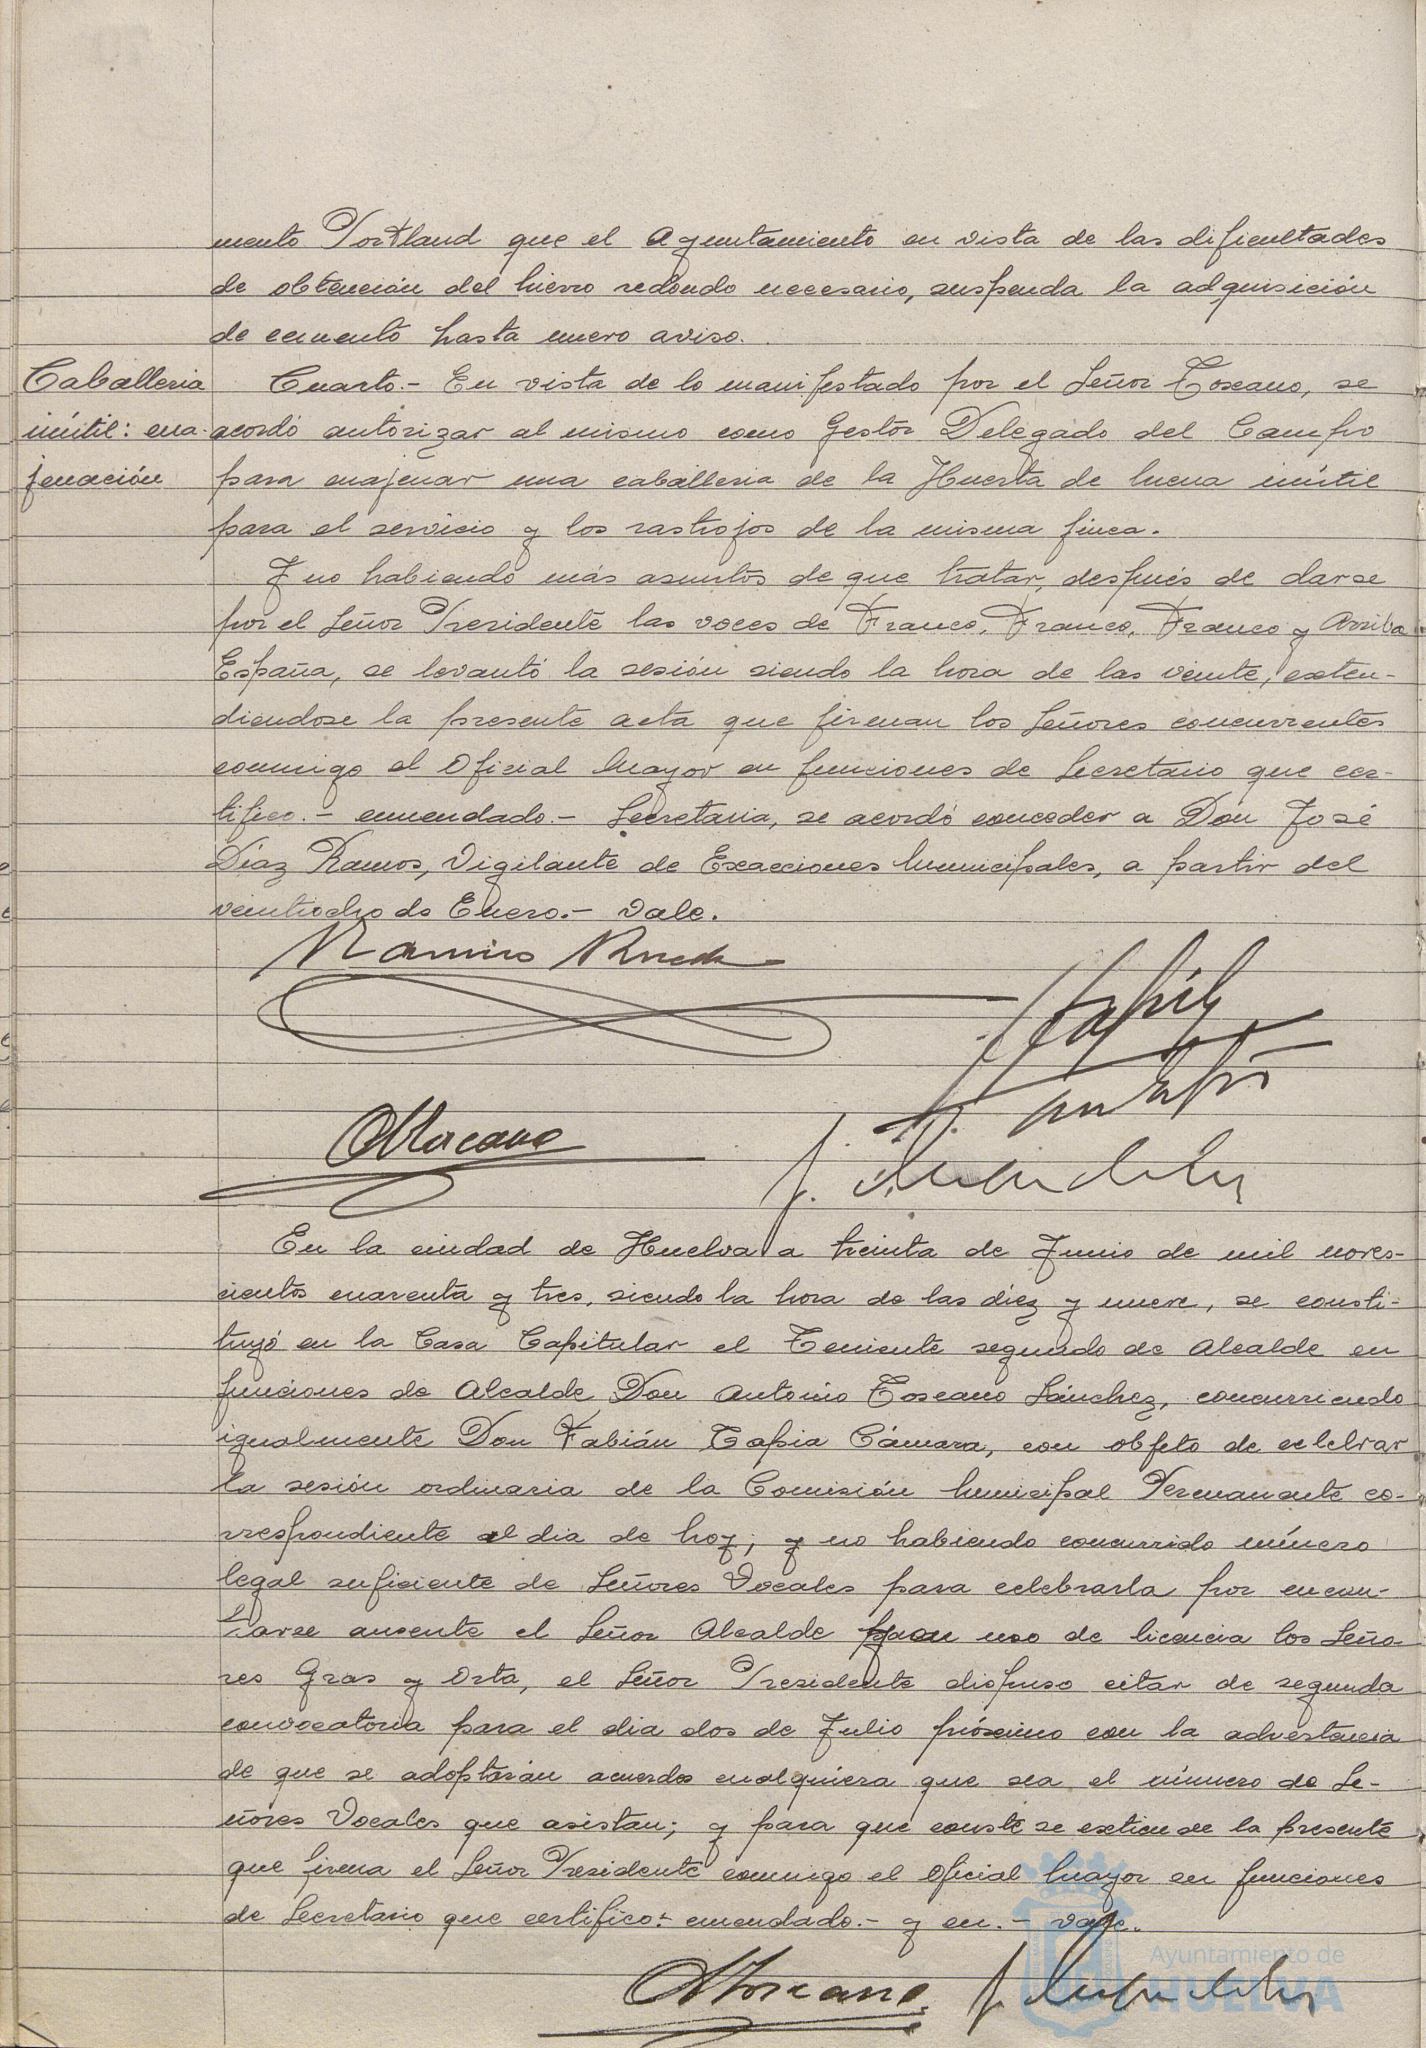 mento Portland que el Ayuntamiento en vista de las dificultades
de obtención del hierro redondo necesario, suspenda la adquisición
de cemento hasta nuevo aviso.
Caballeria
inútil: ena-
jenación
Cuarto.- En vista de lo manifestado por el Señor Toscano, se
acordó autorizar al mismo como Gestor Delegado del Campo
para enajenar una caballeria de la Huerta de Mena inútil
para el servicio y los rastrojos de la misma finca.
Y no habiendo más asuntos de que tratar, después de darse
por el Señor Presidente las voces de Franco, Franco, Franco y Arriba
España, se levantó la sesión siendo la hora de las veinte, exten-
diendose la presente acta que firman los Señores concurrentes
conmigo el Oficial Mayor en funciones de Secretario que cer-
tifico.- enmendado.- Secretaria, se acordó conceder a Don José
Díaz Ramos, Vigilante de Exacciones Municipales, a partir del
veintiocho de Enero.- Vale.
Ramiro
A Toscano
En la ciudad de Huelva a treinta de Junio de mil noves-
cientos cuarenta y tres, siendo la hora de las diez y nueve, se consti-
tuyó en la Casa Capitular el Teniente segundo de Alcalde en
funciones de Alcalde Don Antonio Toscano Sánchez, concurriendo
igualmente Don Fabián Tapia Cámara, con objeto de celebrar
la sesión ordinaria de la Comisión Municipal Permanente co-
rrespondiente al dia de hoy; y no habiendo concurrido número
legal suficiente de Señores Vocales para celebrarla por encon-
trarse ausente el Señor Alcalde y en uso de licencia los Seño-
res Gras y Orta, el Señor Presidente dispuso citar de segunda
convocatoria para el dia dos de Julio próximo con la advertencia
de que se adoptarán acuerdos cualquiera que sea el número de Se-
ñores Vocales que asistan; y para que conste se extiende la presente
que firma el Señor Presidente conmigo el Oficial Mayor en funciones
de Secretario que certifico:- enmendado.- y en.- vale.
A Toscano
Ayuntamiento de
HUELVA